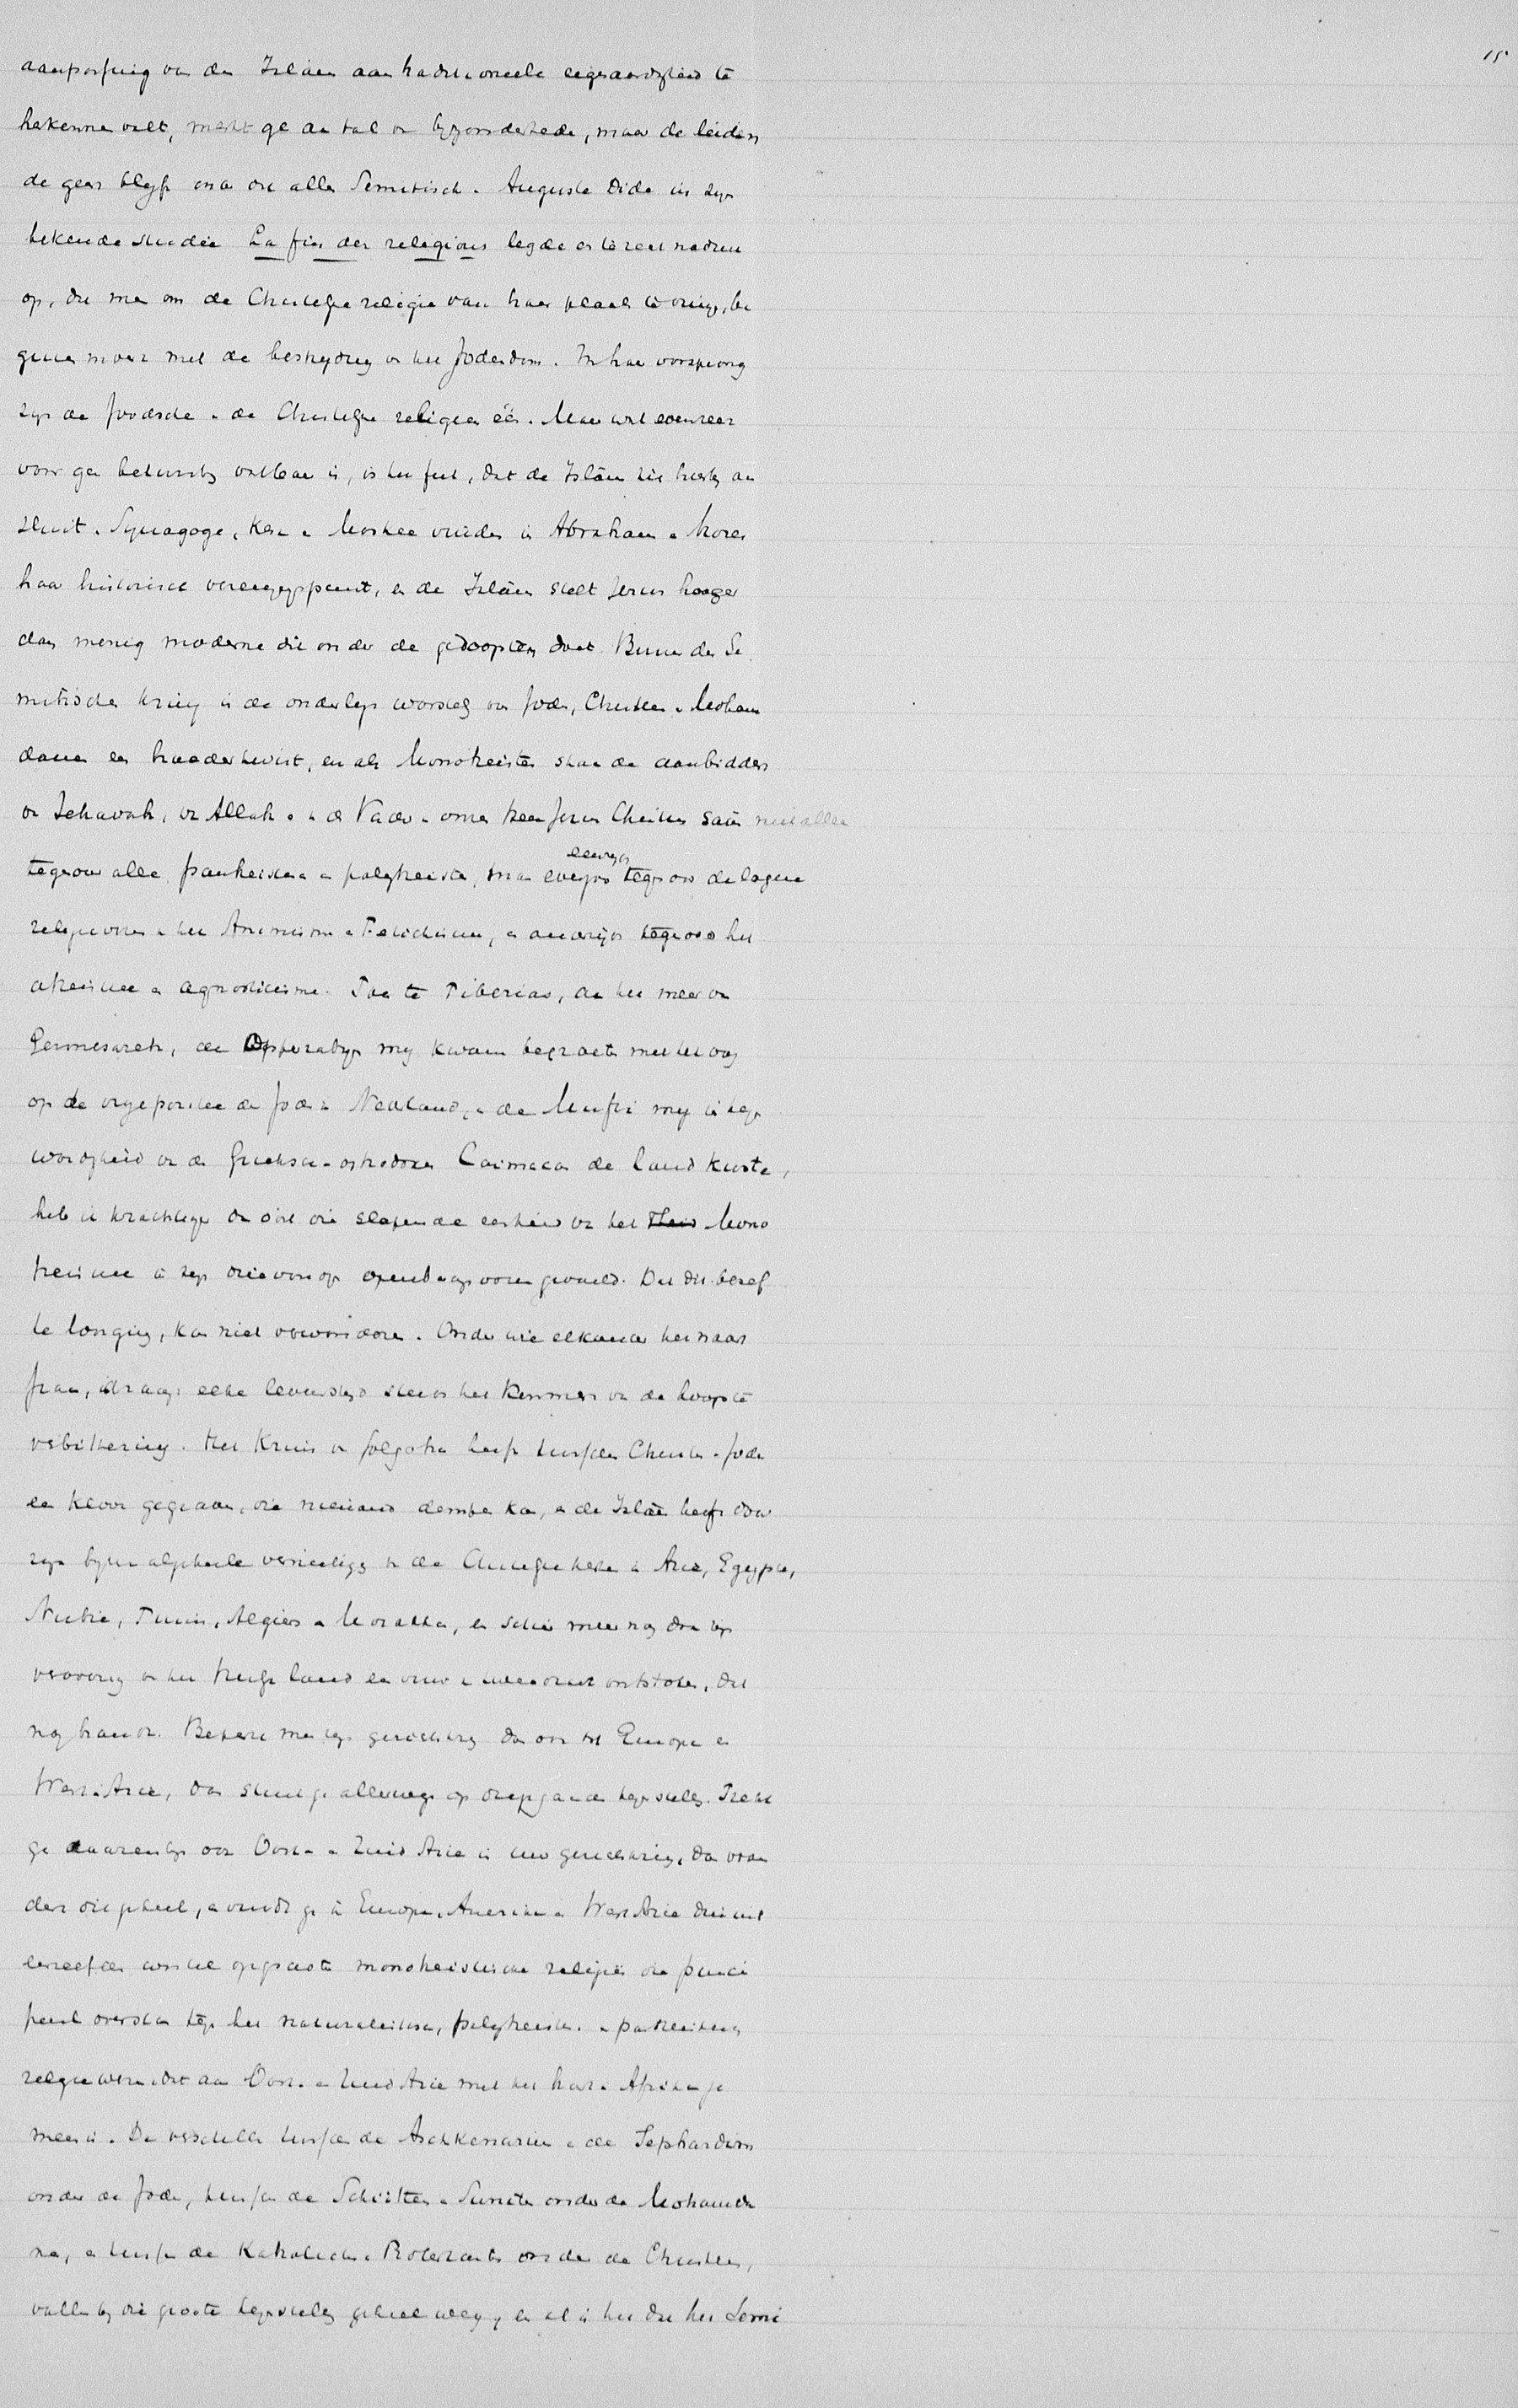 15
aanpassing van den Islâm aan traditioneele eigenaardigheid te
herkennen valt, merkt ge aan tal van byzonderheden, maar de leiden
de geest blyft onder dit alles Semitisch. Auguste Dide in zyn
bekende studie La fin des religions legde er terecht nadruk
op, dat men om de Christelyke religie van haar plaats te dringen, be
ginnen moest met de bestryding van het Jodendom. In haar oorsprong
zyn de Joodsche en de Christelyke religie één. Maar wat evenzeer
voor geen betwisting vatbaar is, is het feit, dat de Islâm zich hierby aan
sluit. Synagoge, Kerk en Moskee vinden in Abraham en Mozes
haar historisch vereenigingspunt, en de Islâm stelt Jezus hooger
dan menig moderne die onder de gedoopten doet. Binnen den Se
mitischen kring is de onderlinge worsteling van Joden, Christen en Moham
danen een broedertwist, en als Monotheisten staan de aanbidders
van Jehovah, van Allah en van den Vader van onzen Heer Jezus Christus saâm niet alleen
tegenover alle pantheisten en polytheisten, maar eenerzyds tegenover de lagere
religievormen van het Animisme en Fetichisme, en anderzyds tegenover het
atheisme en agnosticisme. Toen te Tiberias, aan het meer van
Gennesareth, de Opperrabyn my kwam begroeten met het oog
op de vrye positie der Joden in Nederland, en de Mufti my in tegen
woordigheid van den Grieksch-orthodoxen Caimacan de hand kuste,
heb ik krachtiger dan ooit die slapende eenheid van het Mono
theisme in zyn drievoudige openbaringsvorm gevoeld. Dat dit besef
te loor ging, kan niet verwonderen. Onder wie elkander het naast
staan, draagt elke levensstryd steeds het kenmerk van de hoogste
verbittering. Het Kruis van Golgotha heeft tusschen Christen en Joden
een kloof gegraven, die niemand dempen kan, en de Islâm heeft door
zyn byna algeheele vernietiging van de Christelyke kerk in Azie, Egypte,
Nubie, Tunis, Algiers en Marokko, en schier meer nog door zyn
verovering van het heilige land een vuur van tweedracht ontstoken, dat
nog brandt. Beperkt men zyn gezichtskring dan ook tot Europa en
West-Azie, dan stuit ge allerwege op diepgaande tegenstelling. Trekt
ge daarentegen ook Oost- en Zuid Azie in uw gezichtskring, dan veran
dert dit geheel, en vindt ge in Europa, Amerika en West Azie drie uit
eenzelfden wortel opgeschoten monotheistische religien die princi
pieel overstaan tegen het naturalistisch, polytheistisch en pantheistisch
religiewezen dat aan Oost- en Zuid Azie met het hart van Afrika ge
meen is. De verschillen tusschen de Aschkenazim en de Sephardim
onder de Joden, tusschen de Schiiten en Sunnieten onder de Mohamda
nen, en tusschen de Katholieken en Protestanten onder de Christen,
vallen by die groote tegenstelling geheel weg, en al is het dat het Semi